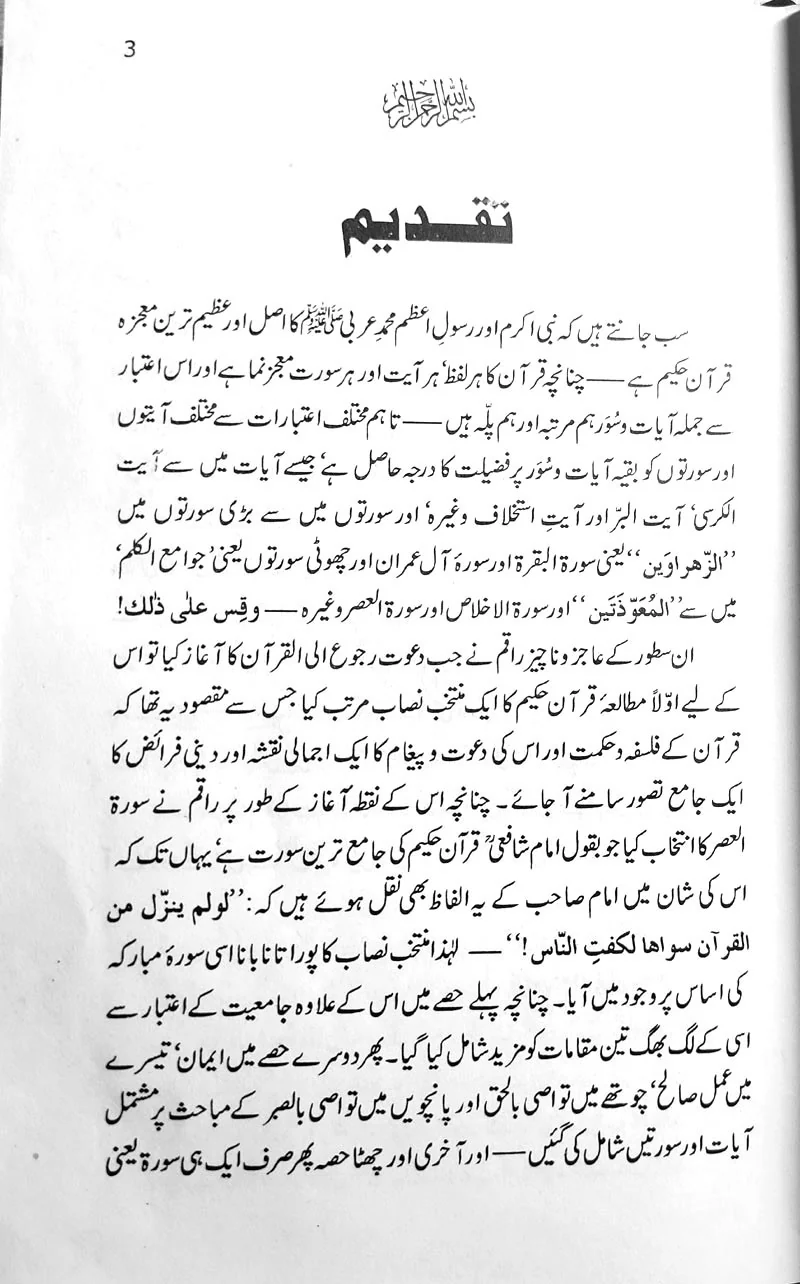 3
بسم الله الرحمن الرحيم
تقدیم
سب جانتے ہیں کہ نبی اکرم اور رسولِ اعظم محمدِ عربی ﷺ کا اصل اور عظیم ترین معجزہ
قرآن حکیم ہے — چنانچہ قرآن کا ہر لفظ‘ ہر آیت اور ہر سورت معجز نما ہے اور اس اعتبار
سے جملہ آیات و سُوَر ہم مرتبہ اور ہم پلّہ ہیں — تاہم مختلف اعتبارات سے مختلف آیتوں
اور سورتوں کو بقیہ آیات و سُوَر پر فضیلت کا درجہ حاصل ہے‘ جیسے آیات میں سے آیت
الکرسی‘ آیت البرّ اور آیتِ استخلاف وغیرہ‘ اور سورتوں میں سے بڑی سورتوں میں
’’الزّھراوَین‘‘ یعنی سورۃ البقرۃ اور سورۂ آل عمران اور چھوٹی سورتوں یعنی ’جوامع الکلم‘
میں سے ’’المُعَوّذَتَین‘‘ اور سورۃ الاخلاص اور سورۃ العصر وغیرہ — وقِس علٰی ذٰلك!
ان سطور کے عاجز و ناچیز راقم نے جب دعوت رجوع الی القرآن کا آغاز کیا تو اس
کے لیے اوّلاً مطالعۂ قرآن حکیم کا ایک منتخب نصاب مرتب کیا جس سے مقصود یہ تھا کہ
قرآن کے فلسفہ و حکمت اور اس کی دعوت و پیغام کا ایک اجمالی نقشہ اور دینی فرائض کا
ایک جامع تصور سامنے آ جائے۔ چنانچہ اس کے نقطۂ آغاز کے طور پر راقم نے سورۃ
العصر کا انتخاب کیا جو بقول امام شافعیؒ قرآن حکیم کی جامع ترین سورت ہے‘ یہاں تک کہ
اس کی شان میں امام صاحب کے یہ الفاظ بھی نقل ہوئے ہیں کہ: ’’لولم ینزّل من
القرآن سواھا لکفتِ النّاس!‘‘ — لہٰذا منتخب نصاب کا پورا تانا بانا اسی سورۂ مبارکہ
کی اساس پر وجود میں آیا۔ چنانچہ پہلے حصے میں اس کے علاوہ جامعیت کے اعتبار سے
اسی کے لگ بھگ تین مقامات کو مزید شامل کیا گیا۔ پھر دوسرے حصے میں ایمان‘ تیسرے
میں عمل صالح‘ چوتھے میں تواصی بالحق اور پانچویں میں تواصی بالصبر کے مباحث پر مشتمل
آیات اور سورتیں شامل کی گئیں — اور آخری اور چھٹا حصہ پھر صرف ایک ہی سورۃ یعنی